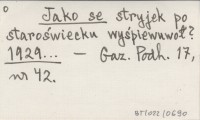 Jako se stryjek po
staroświecku wyśpiewuwoł?
1929... — Gaz. Podh. 17,
nr 42.
BT/022/0690